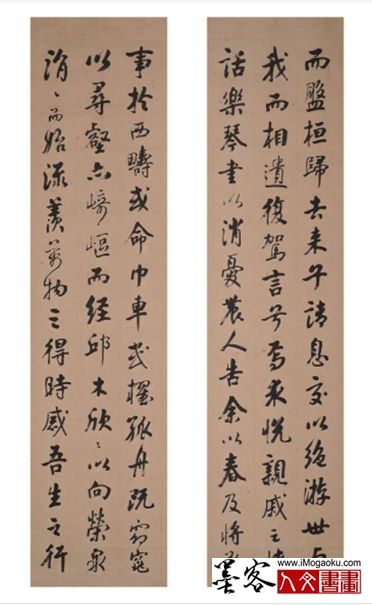 而盤桓歸去来兮請息交以絶游世与
我而相遺復駕言兮焉求悦親戚之情
話樂琴書以消憂農人告余以春及將
事於西疇或命巾車或櫂孤舟既窈窕
以尋壑亦崎嶇而經邱木欣〻以向榮泉
涓〻而始流羡萬物之得時感吾生之行
墨客
www.iMogaoku.com
人文書畫